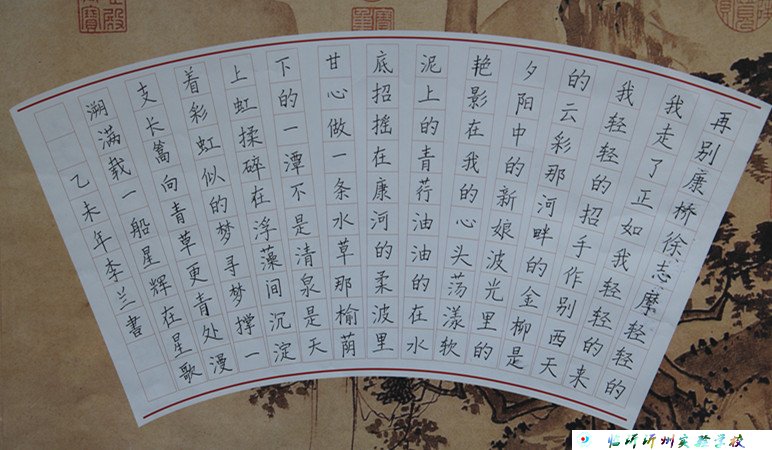 再别康桥徐志摩轻轻的
我走了正如我轻轻的来
我轻轻的招手作别西天
的云彩那河畔的金柳是
夕阳中的新娘波光里的
艳影在我的心头荡漾软
泥上的青荇油油的在水
底招摇在康河的柔波里
甘心做一条水草那榆荫
下的一潭不是清泉是天
上虹揉碎在浮藻间沉淀
着彩虹似的梦寻梦撑一
支长篙向青草更青处漫
溯满载一船星辉在星歌
乙未年李兰書
临沂沂州实验学校